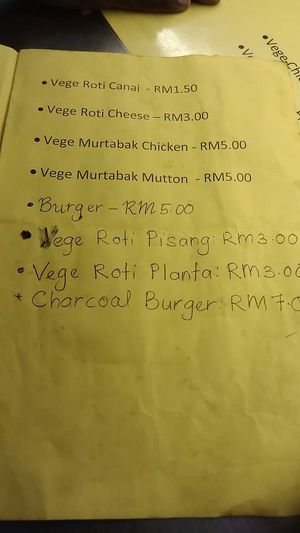 • Vege Roti Canai - RM1.50
• Vege Roti Cheese – RM3.00
• Vege Murtabak Chicken - RM5.00
• Vege Murtabak Mutton - RM5.00
• Burger – RM5.00
• Vege Roti Pisang: RM3.00
• Vege Roti Planta: RM3.00
* Charcoal Burger: RM7.0
• Vege Chi
• V